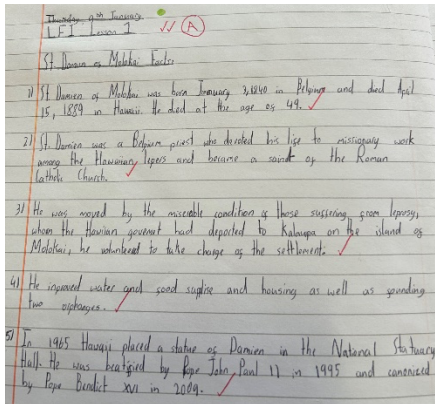 Thursday 9th January
LFI Lesson 1
A
St. Damien of Molokai Facts:
1) St Damien of Molokai was born January 3, 1840 in Belgium and died April
15, 1889 in Hawaii. He died at the age of 49.
2) St. Damien was a Belgium priest who devoted his life to missionary work
among the Hawaiian lepers and became a saint of the Roman
Catholic Church.
3) He was moved by the miserable condition of those suffering from leprosy,
whom the Hawiian goverment had deported to Kalaupa on the island of
Molokai, he volunteered to take charge of the settlement.
4) He improved water and food supplise and housing as well as founding
two orphanges.
5) In 1965 Hawaii placed a statue of Damien in the National Statuary
Hall. He was beatified by Pope John Paul II in 1995 and canonized
by Pope Bendict XVI in 2009.